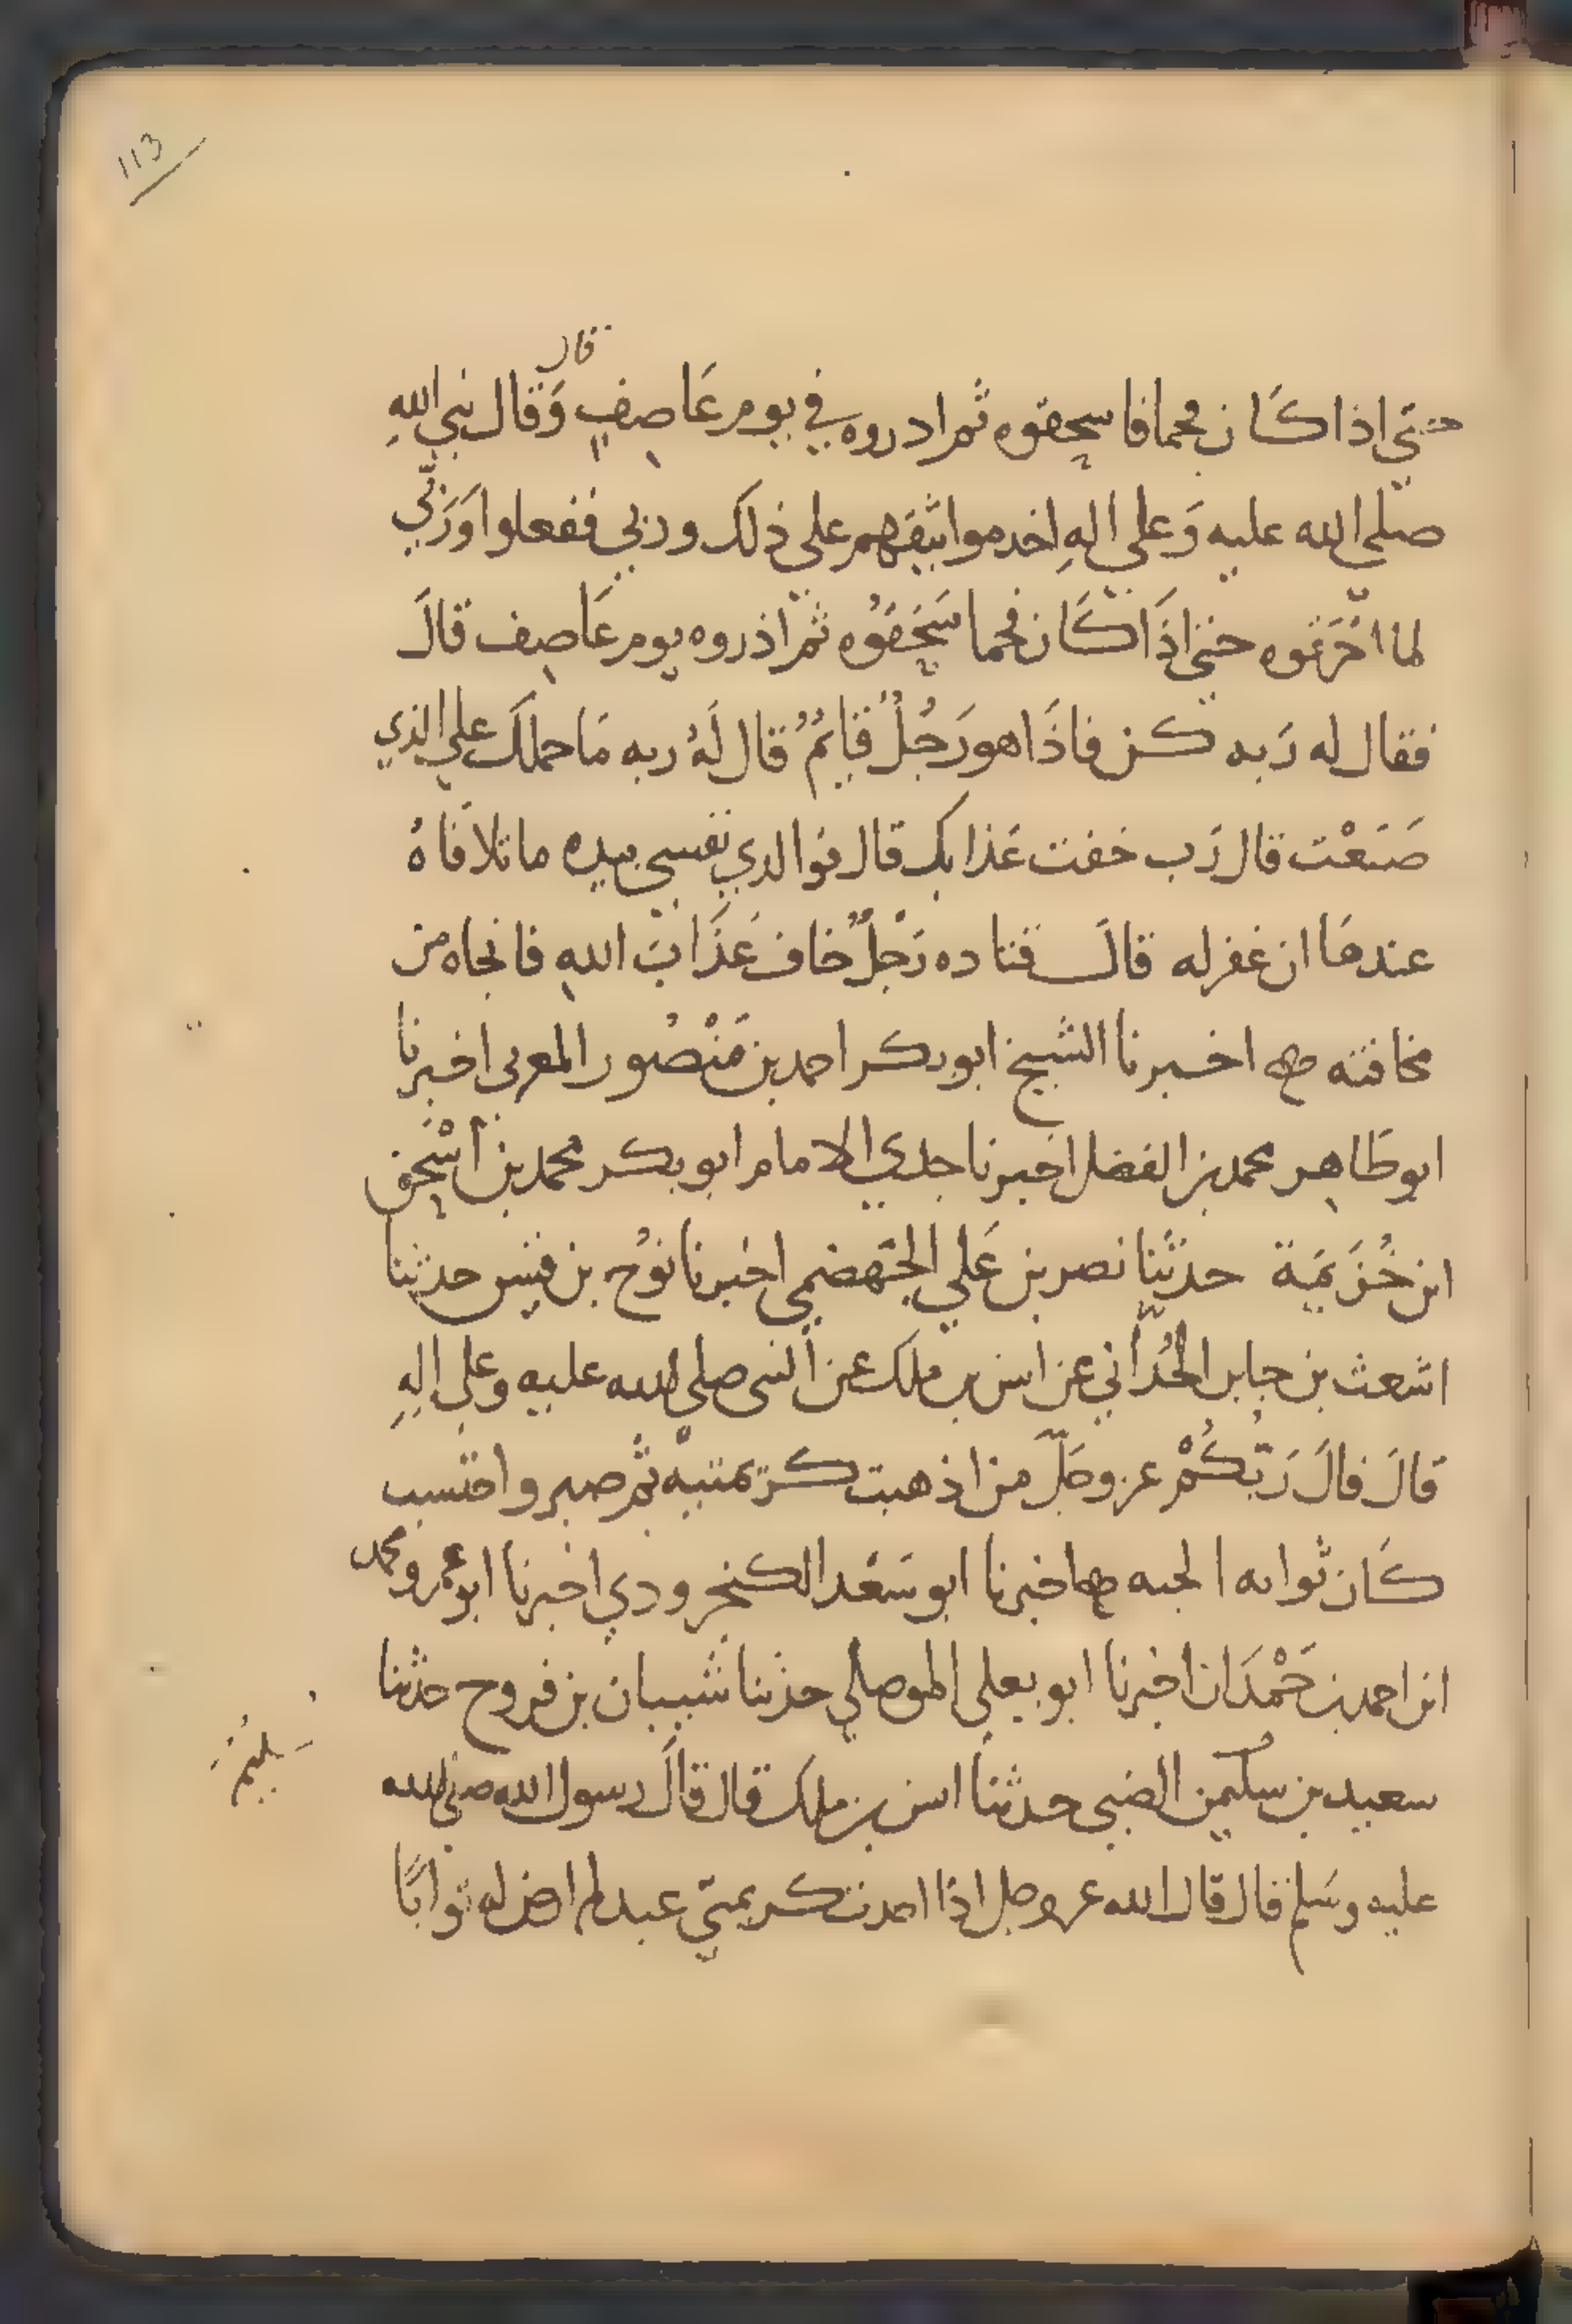 113
قال
حتى اذا كَان فحما فاسحقوه ثم اذروه في يوم عَاصِفٍ وَقال نبي اللهِ
صلى الله عليه وَعلى الهِ اخذ مواثيقهم على ذلك وربي ففعلوا وَرَبّي
لما احْرَقوه حتى اذَا كَان فحما سَحَقوُه ثم اذروه يوم عَاصِف قالَ
فقال له رَبه كن فاذَا هو رَجُلٌ قَايمٌ قال لَهُ ربه مَا حملكَ على الذي
صَنَعْت قال رَب خفت عَذابك قال فوالذي نفسي بيده ما تلافَاهُ
عندهَا ان غفر له قالَ قتاده رَجُلٌ خاف عَذَابَ اللهِ فانجاه من
مخافته اخبرنا الشيخ ابو بكر احمد بن مَنْصُور المغربي اخبرنا
ابو طَاهِر محمد بن الفضل اخبرنا جدي الامام ابو بكر محمد بن اسْحق
ابن خُزَيمَة حدثنَا نصر بن عَلي الجَهضمي اخبرنا نوُح بن قيس حدثنا
اشعث بن جابر الحُدّاني عن انس بن ملك عن النبى صلى الله عليه وعلى الهِ
قالَ قالَ رَبّكُمْ عز وجَلّ من اذهبت كريمتيْه ثم صبر واحتسب
كَان ثوابه الجنه اخبرنا ابو سَعْد الكنجرودي اخبرنا ابو عمرو محمد
ابن احمد بن حَمْدَان اخبرنا ابو يعلي الموصلي حدثنا شيبان بن فروح حدثنا
سعيد بن سليمن الضبي حدثنا انس بن ملك قال قالَ رسول الله صلى الله
سليم
عليه وسَلم قال قال الله عز وجل اذا اخذت كريمتي عبد لم ارض له ثوابًا